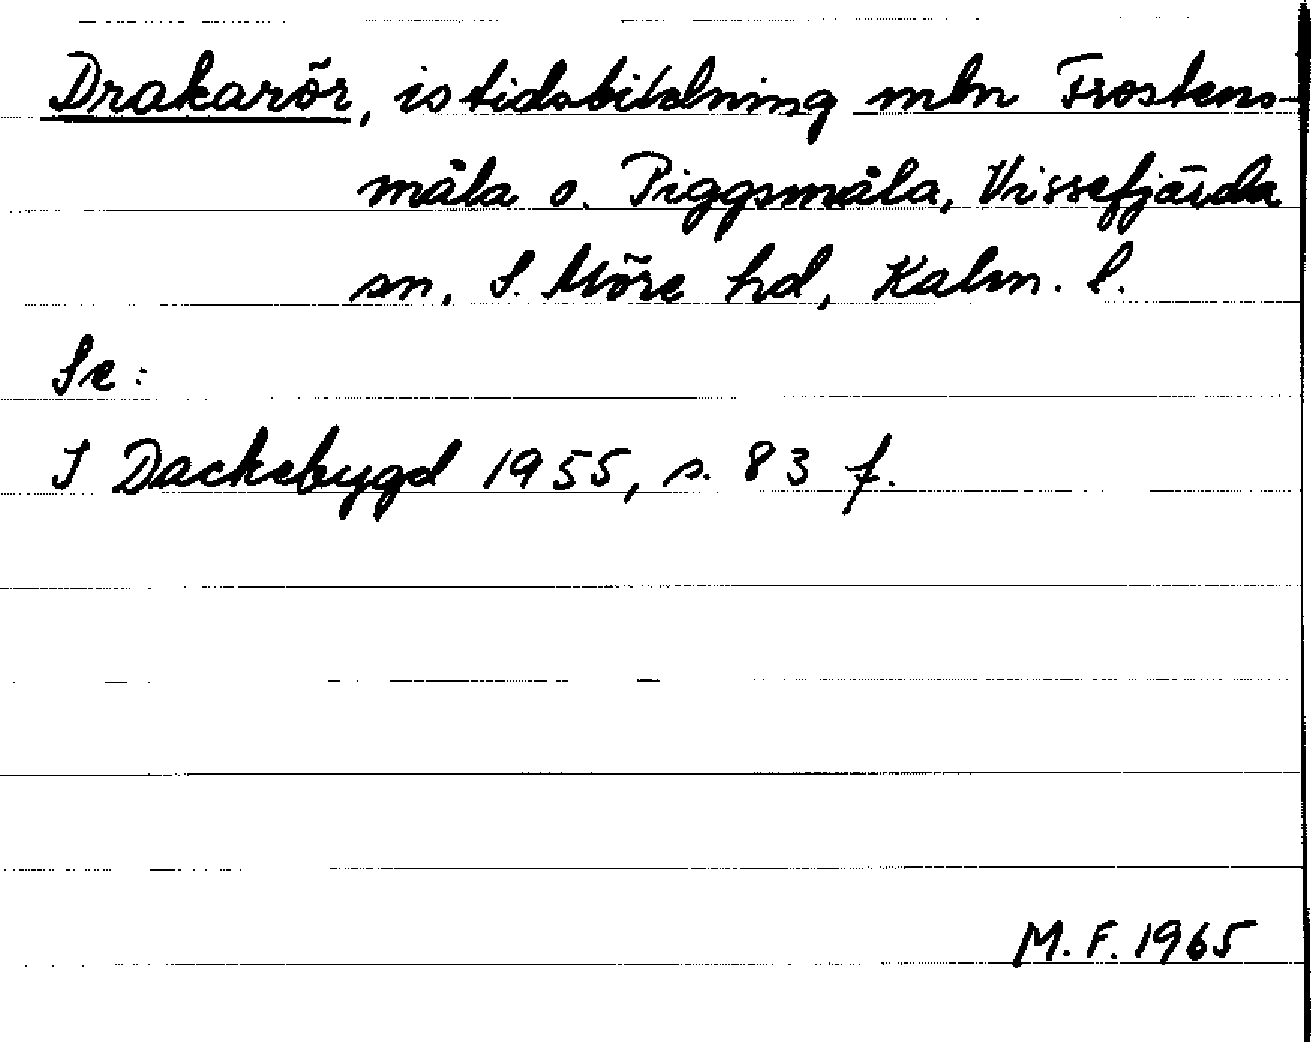 Drakarör, istidsbildning mln Frostens-
måla o. Piggsmåla, Vissefjärda
sn, S. Möre hd, Kalm. l.
Se:
I Dackebygd 1955, s. 83 f.
M.F. 1965